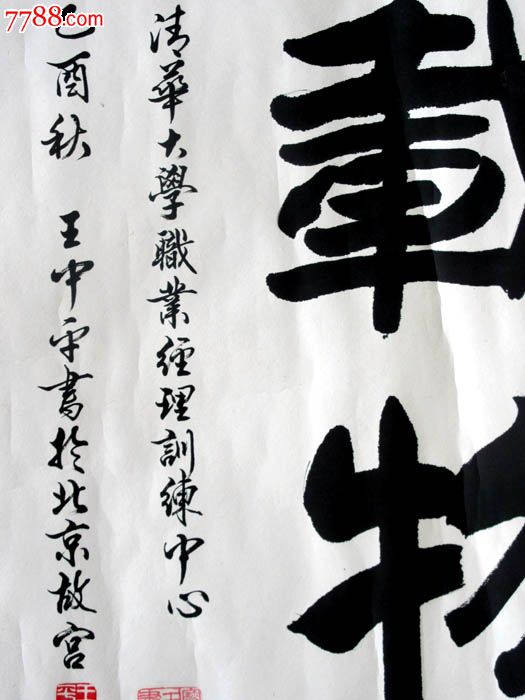 7788.com
載物
清華大學職業經理訓練中心
己酉秋 王中平書於北京故宮